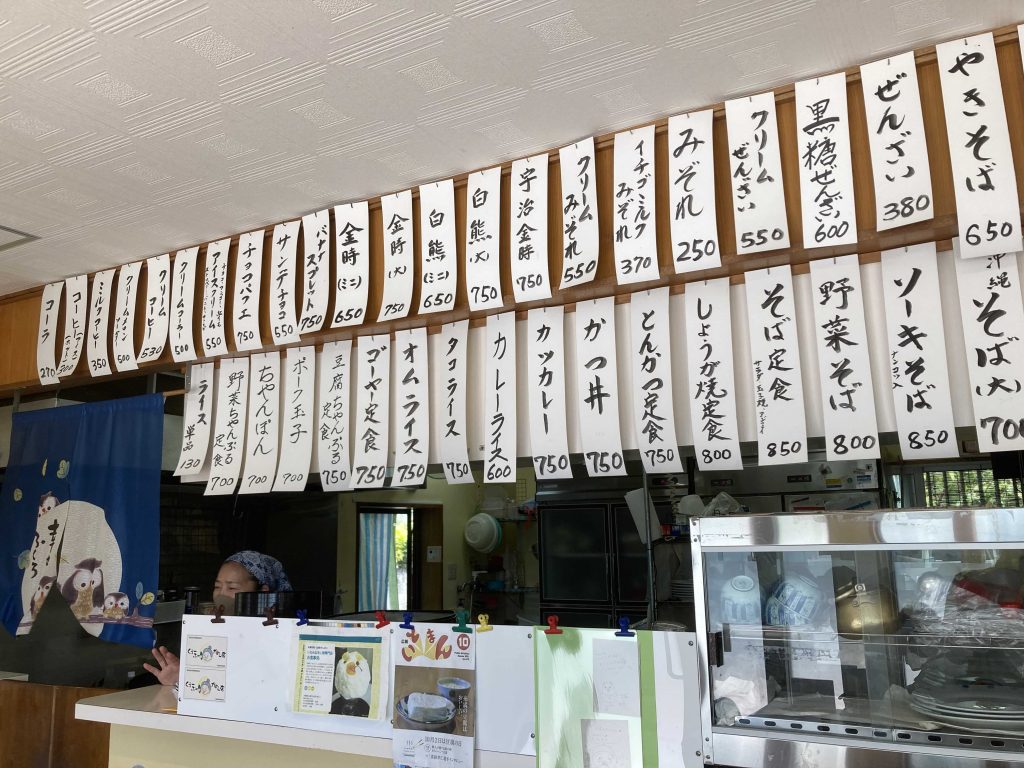 やきそば
650
ぜんざい
380
黒糖ぜんざい
600
クリーム
ぜんざい
550
みぞれ
250
イチゴミルク
みぞれ
370
クリーム
みぞれ
550
宇治金時
750
白熊
750
白熊
(ミニ)
650
金時
(大)
750
金時
(ミニ)
650
バナナ
スプレット
750
サンデーチョコ
650
チョコパフェ
750
アイス
クリーム
550
クリームコーラー
500
クリーム
コーヒー
530
クリームメロン
500
ミルクコーヒー
350
コーヒー
300
コーラ
270
沖縄
そば(大)
700
ソーキそば
850
野菜そば
800
そば定食
850
しょうが焼定食
800
とんかつ定食
750
かつ丼
750
カツカレー
750
カレーライス
600
タコライス
750
オムライス
750
ゴーヤー定食
750
豆腐ちゃんぷる
定食
750
ポーク玉子
700
ちゃんぽん
700
野菜ちゃんぷる
定食
700
ライス
単品
130
10